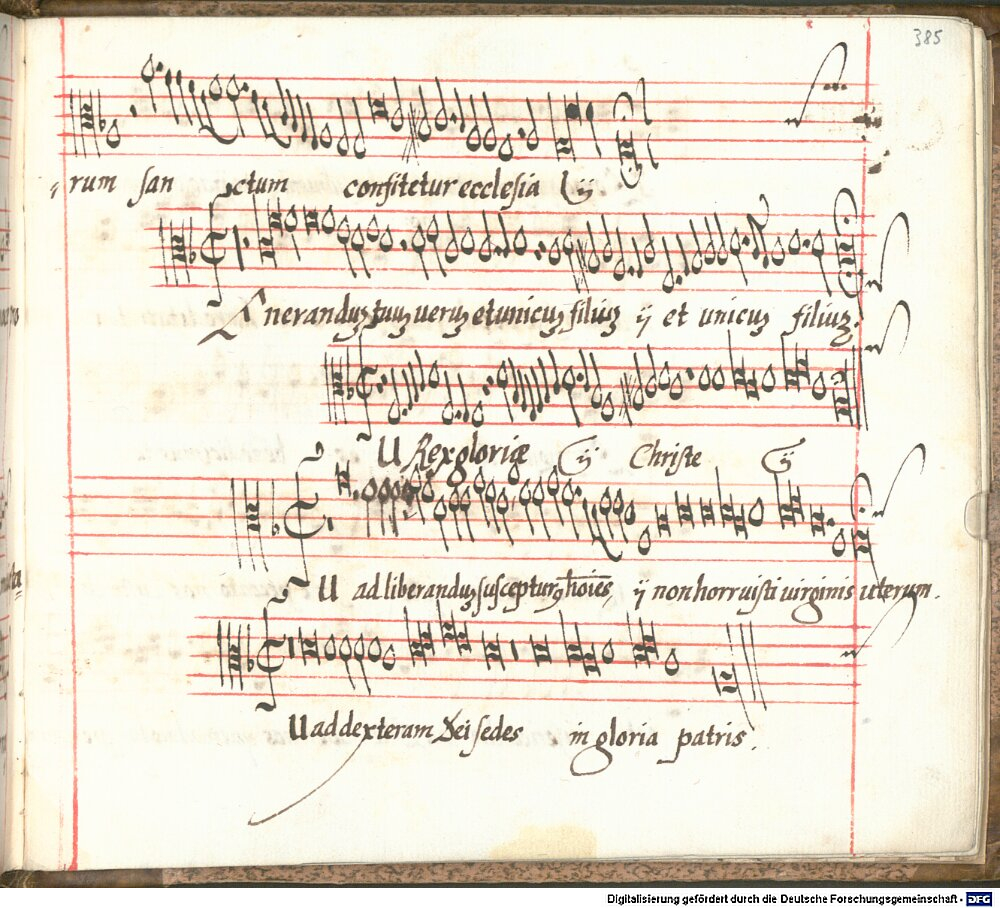 385
rum san ctum confitetur ecclesia ij.
neranduʒ tuuʒ ueruʒ et unicuʒ filiuʒ ij et unicuʒ filiuʒ.
U Rex gloriæ ij Christe ij
U ad liberanduʒ suscepturʒ hoiēs ij non horruisti uirginis uterum.
U ad dexteram Dei sedes in gloria patris.
Digitalisierung gefördert durch die Deutsche Forschungsgemeinschaft - DFG